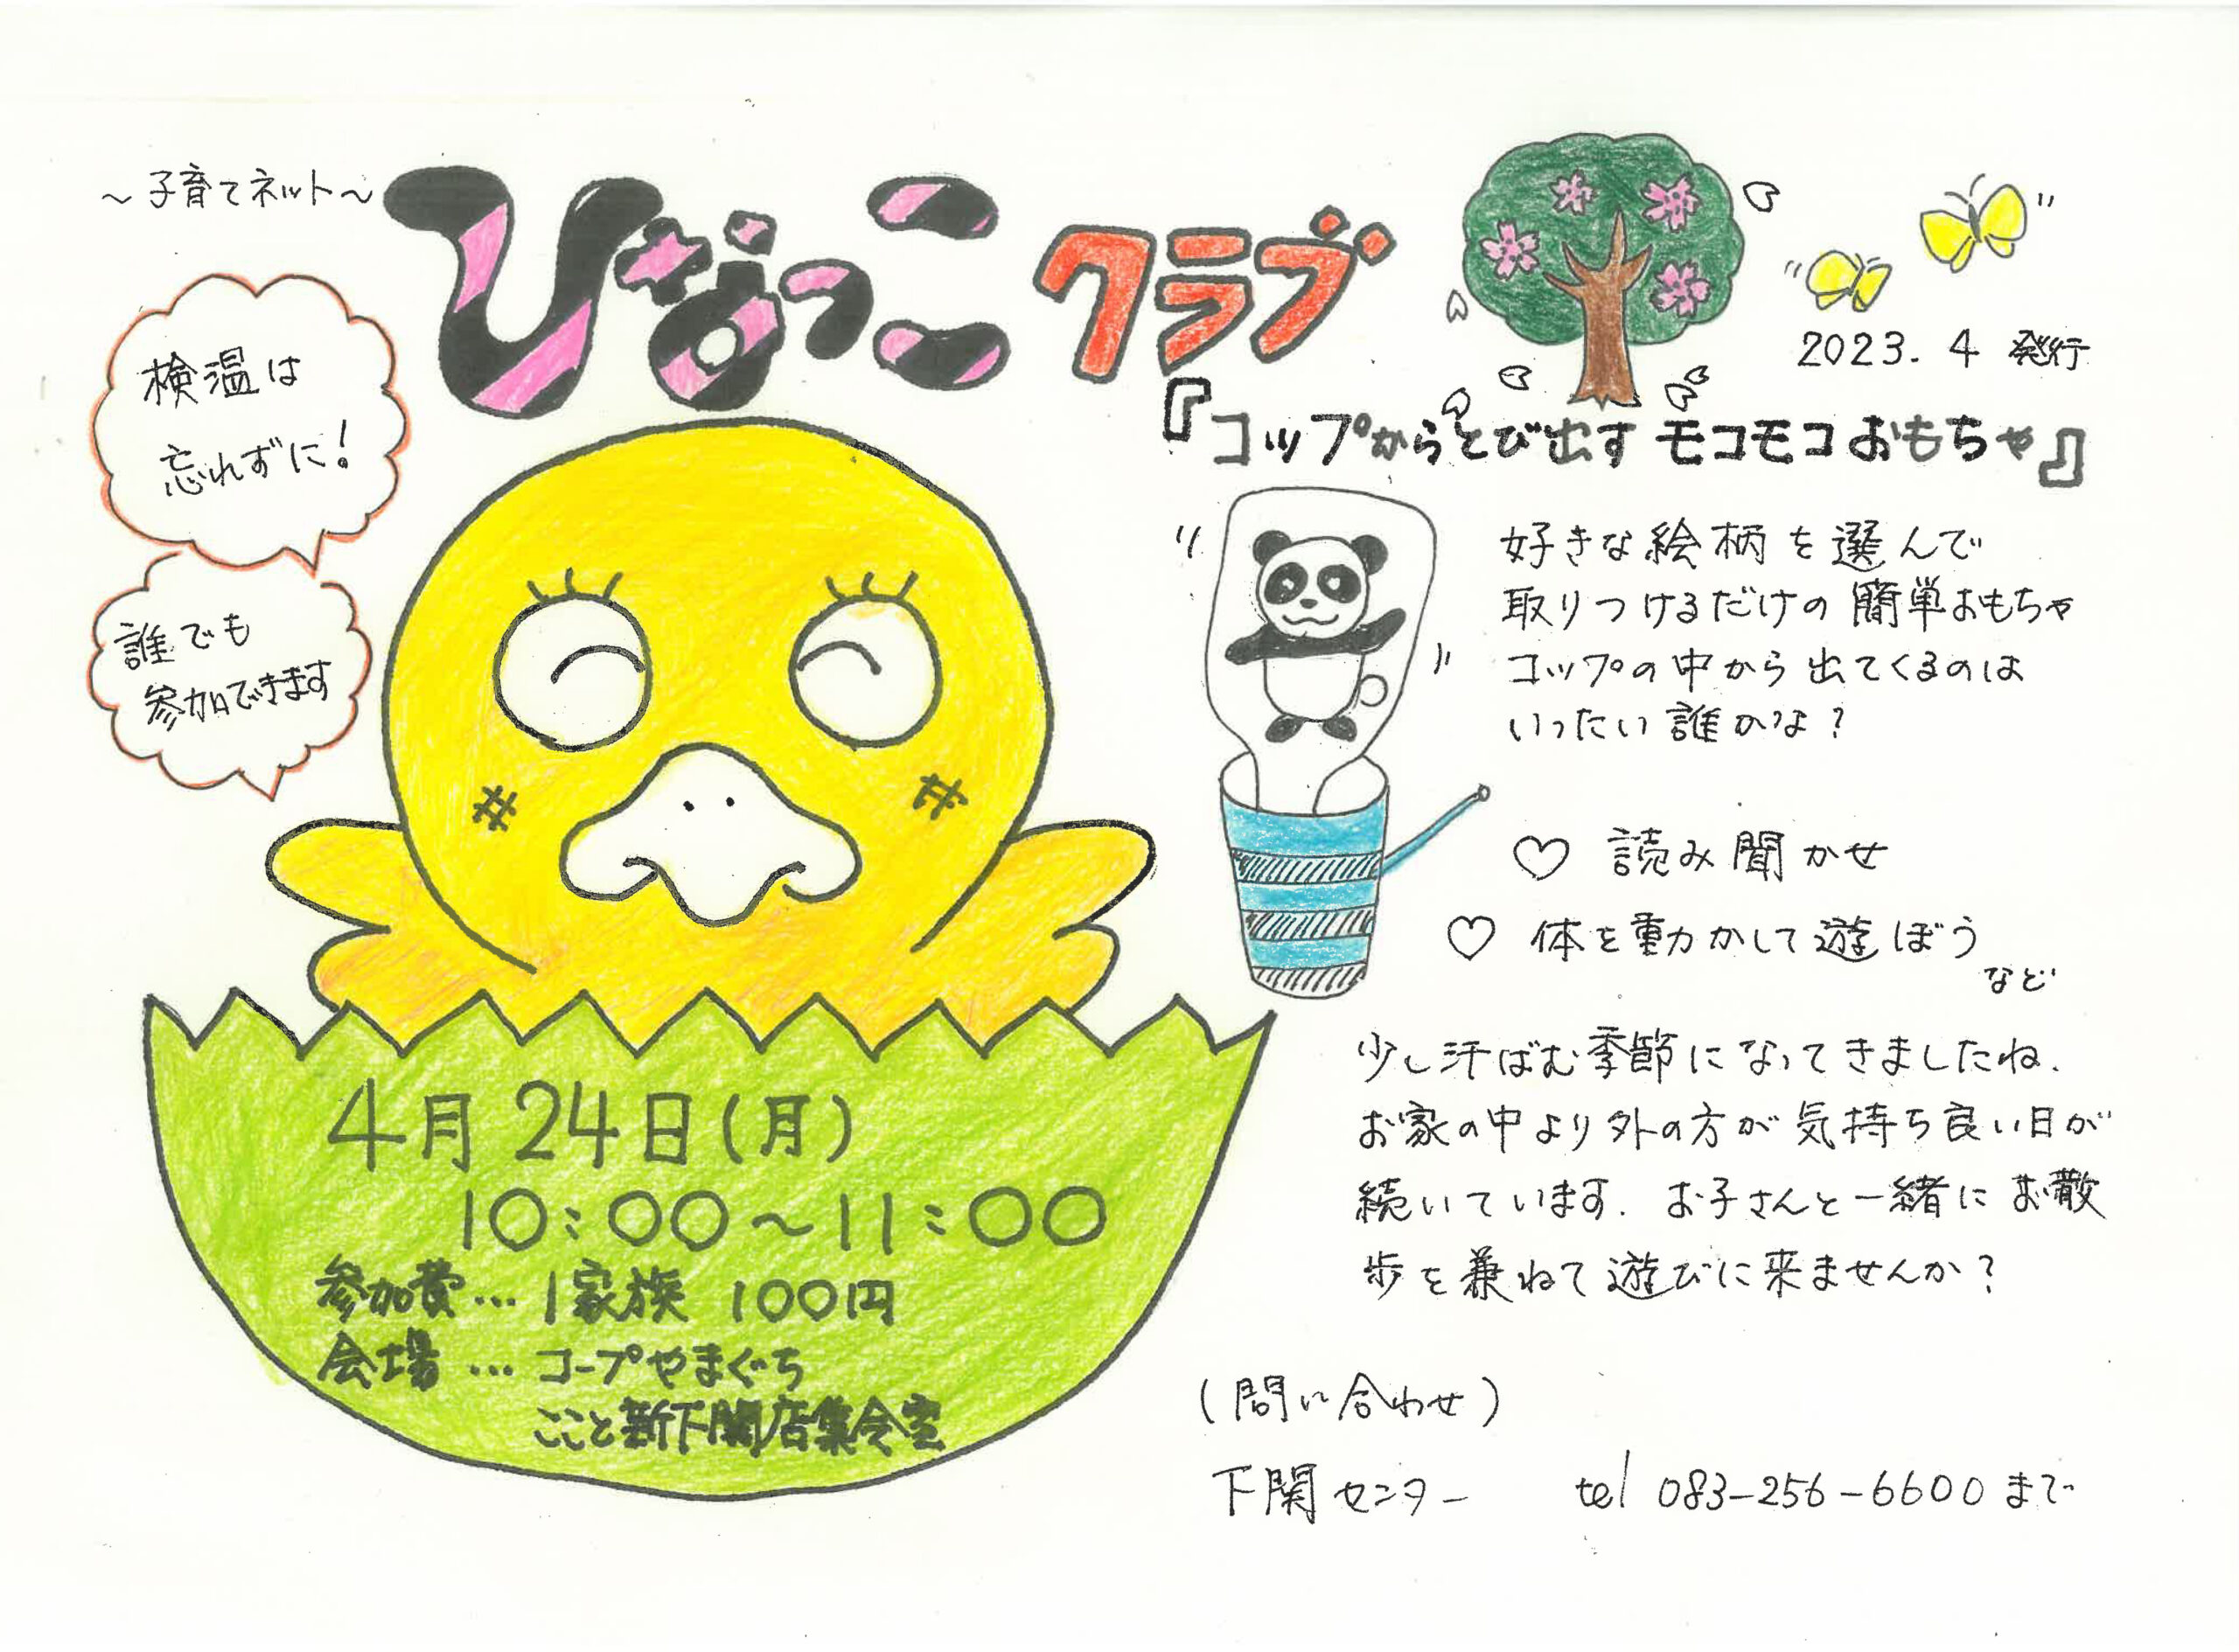 ～子育てネット～
ひなっこクラブ
2023.4 発行
検温は
忘れずに!
誰でも
参加できます
『コップからとび出す モコモコおもちゃ』
好きな絵柄を選んで
取りつけるだけの簡単おもちゃ
コップの中から出てくるのは
いったい誰かな?
♡ 読み聞かせ
♡ 体を動かして遊ぼう
など
少し汗ばむ季節になってきましたね.
お家の中より外の方が気持ち良い日が
続いています. お子さんと一緒にお散
歩を兼ねて遊びに来ませんか?
4月24日(月)
10:00～11:00
参加費… 1家族 100円
会場 … コープやまぐち
ここと新下関店集会室
(問い合わせ)
下関センター tel 083-256-6600まで